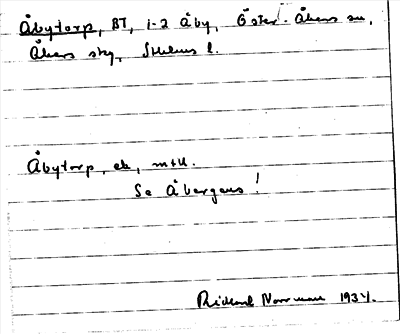 Åbytorp, BT, 1-2 Åby, Öster-Åkers sn,
Åkers sky, Sthlms l.
Åbytorp, ek, mtl.
Se Åbergens!
Rickard Norrman 1934.